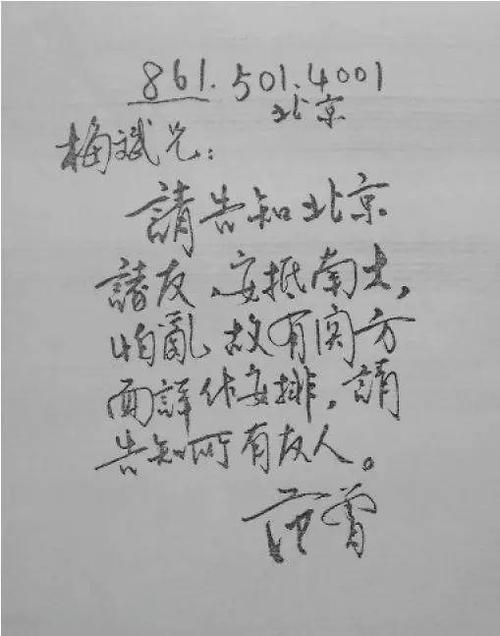 861.501.4001
北京
梅斌兄：
請告知北京
諸友、安抵南大，
怕亂故有関方
面詳作安排，請
告知所有友人。
范曾